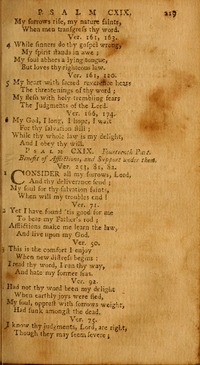 PSALM CXIX. 219
My sorrows rise, my nature faints,
When men transgress thy word.
Ver. 161, 163.
4 While sinners do thy gospel wrong,
My spirit stands in awe;
My soul abhors a lying tongue,
But loves thy righteous law.
Ver. 161, 120.
5 My heart with sacred rev'rence hears
The threat'nings of thy word;
My flesh with holy trembling fears
The Judgments of the Lord.
Ver. 166, 174.
6 My God, I long, I hope, I wait
For thy salvation still;
While thy whole law is my delight,
And I obey thy will.
PSALM CXIX. Fourteenth Part.
Benefit of Afflictions, and Support under them.
Ver. 153, 81, 82.
1 CONSIDER all my sorrows, Lord,
And thy deliv'rance send;
My soul for thy salvation faints,
When will my troubles end!
Ver. 71.
2 Yet I have found 'tis good for me
To bear my Father's rod;
Afflictions make me learn the law,
And live upon my God.
Ver. 50.
3 This is the comfort I enjoy
When new distress begins:
I read thy word, I run thy way,
And hate my former sins.
Ver. 92.
Had not thy word been my delight
When earthly joys were fled,
My soul, opprest with sorrows weight,
Had sunk amongst the dead.
Ver. 75.
I know thy judgments, Lord, are right,
Though they may seem severe;